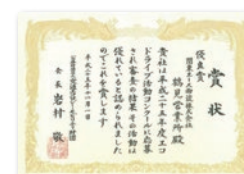 賞状
優良賞
関東エース物流株式会社
鶴見営業所殿
貴社は平成二十五年度エコ
ドライブ活動コンクールに応募
され審査の結果その活動は
優れていると認められました
のでこれを賞します
平成二十五年十一月一日
会長 岩村 敬